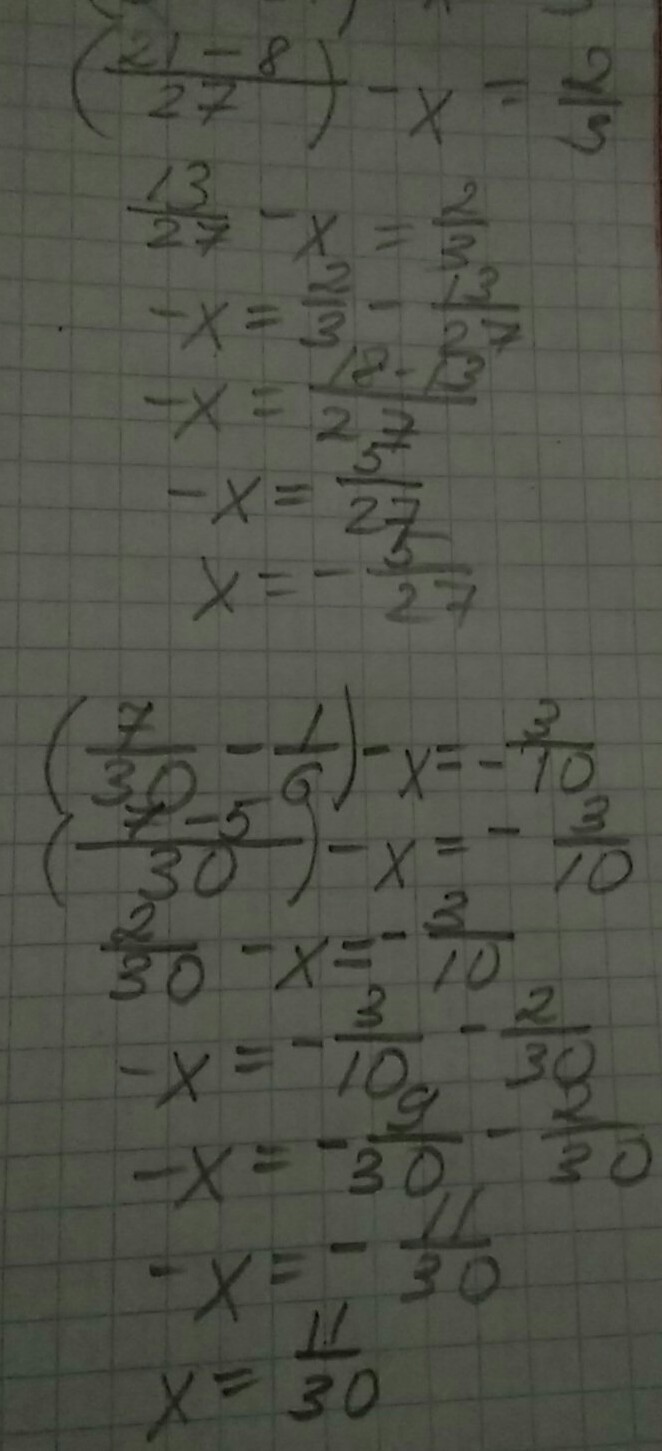 (21-8/27) - x = 2/3
13/27 - x = 2/3
-x = 2/3 - 13/27
-x = 18-13/27
-x = 5/27
x = - 5/27
(7/30 - 1/6) - x = - 3/10
(7-5/30) - x = - 3/10
2/30 - x = - 3/10
-x = - 3/10 - 2/30
-x = - 9/30 - 2/30
-x = - 11/30
x = 11/30